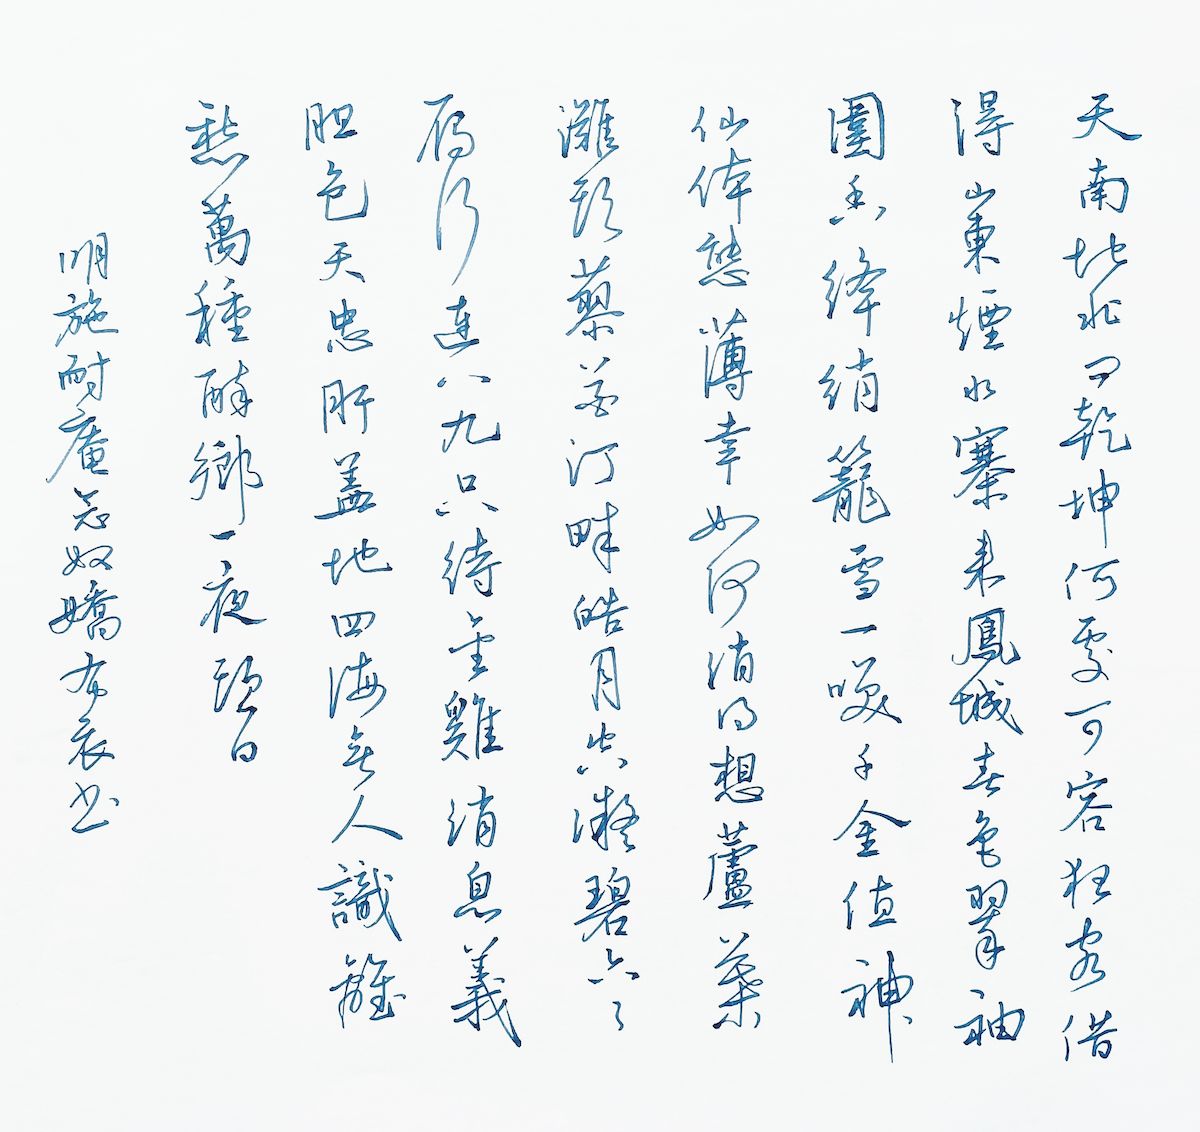 天南地北問乾坤何處可容狂客借
得山東煙水寨來鳳城春色翠袖
圍香絳綃籠雪一笑千金值神
仙体態薄幸如何消得想蘆葉
灘頭蓼花汀畔皓月空凝碧六六
雁行連八九只待金雞消息義
胆包天忠肝蓋地四海無人識離
愁萬種醉鄉一夜頭白
明施耐庵念奴嬌布衣書